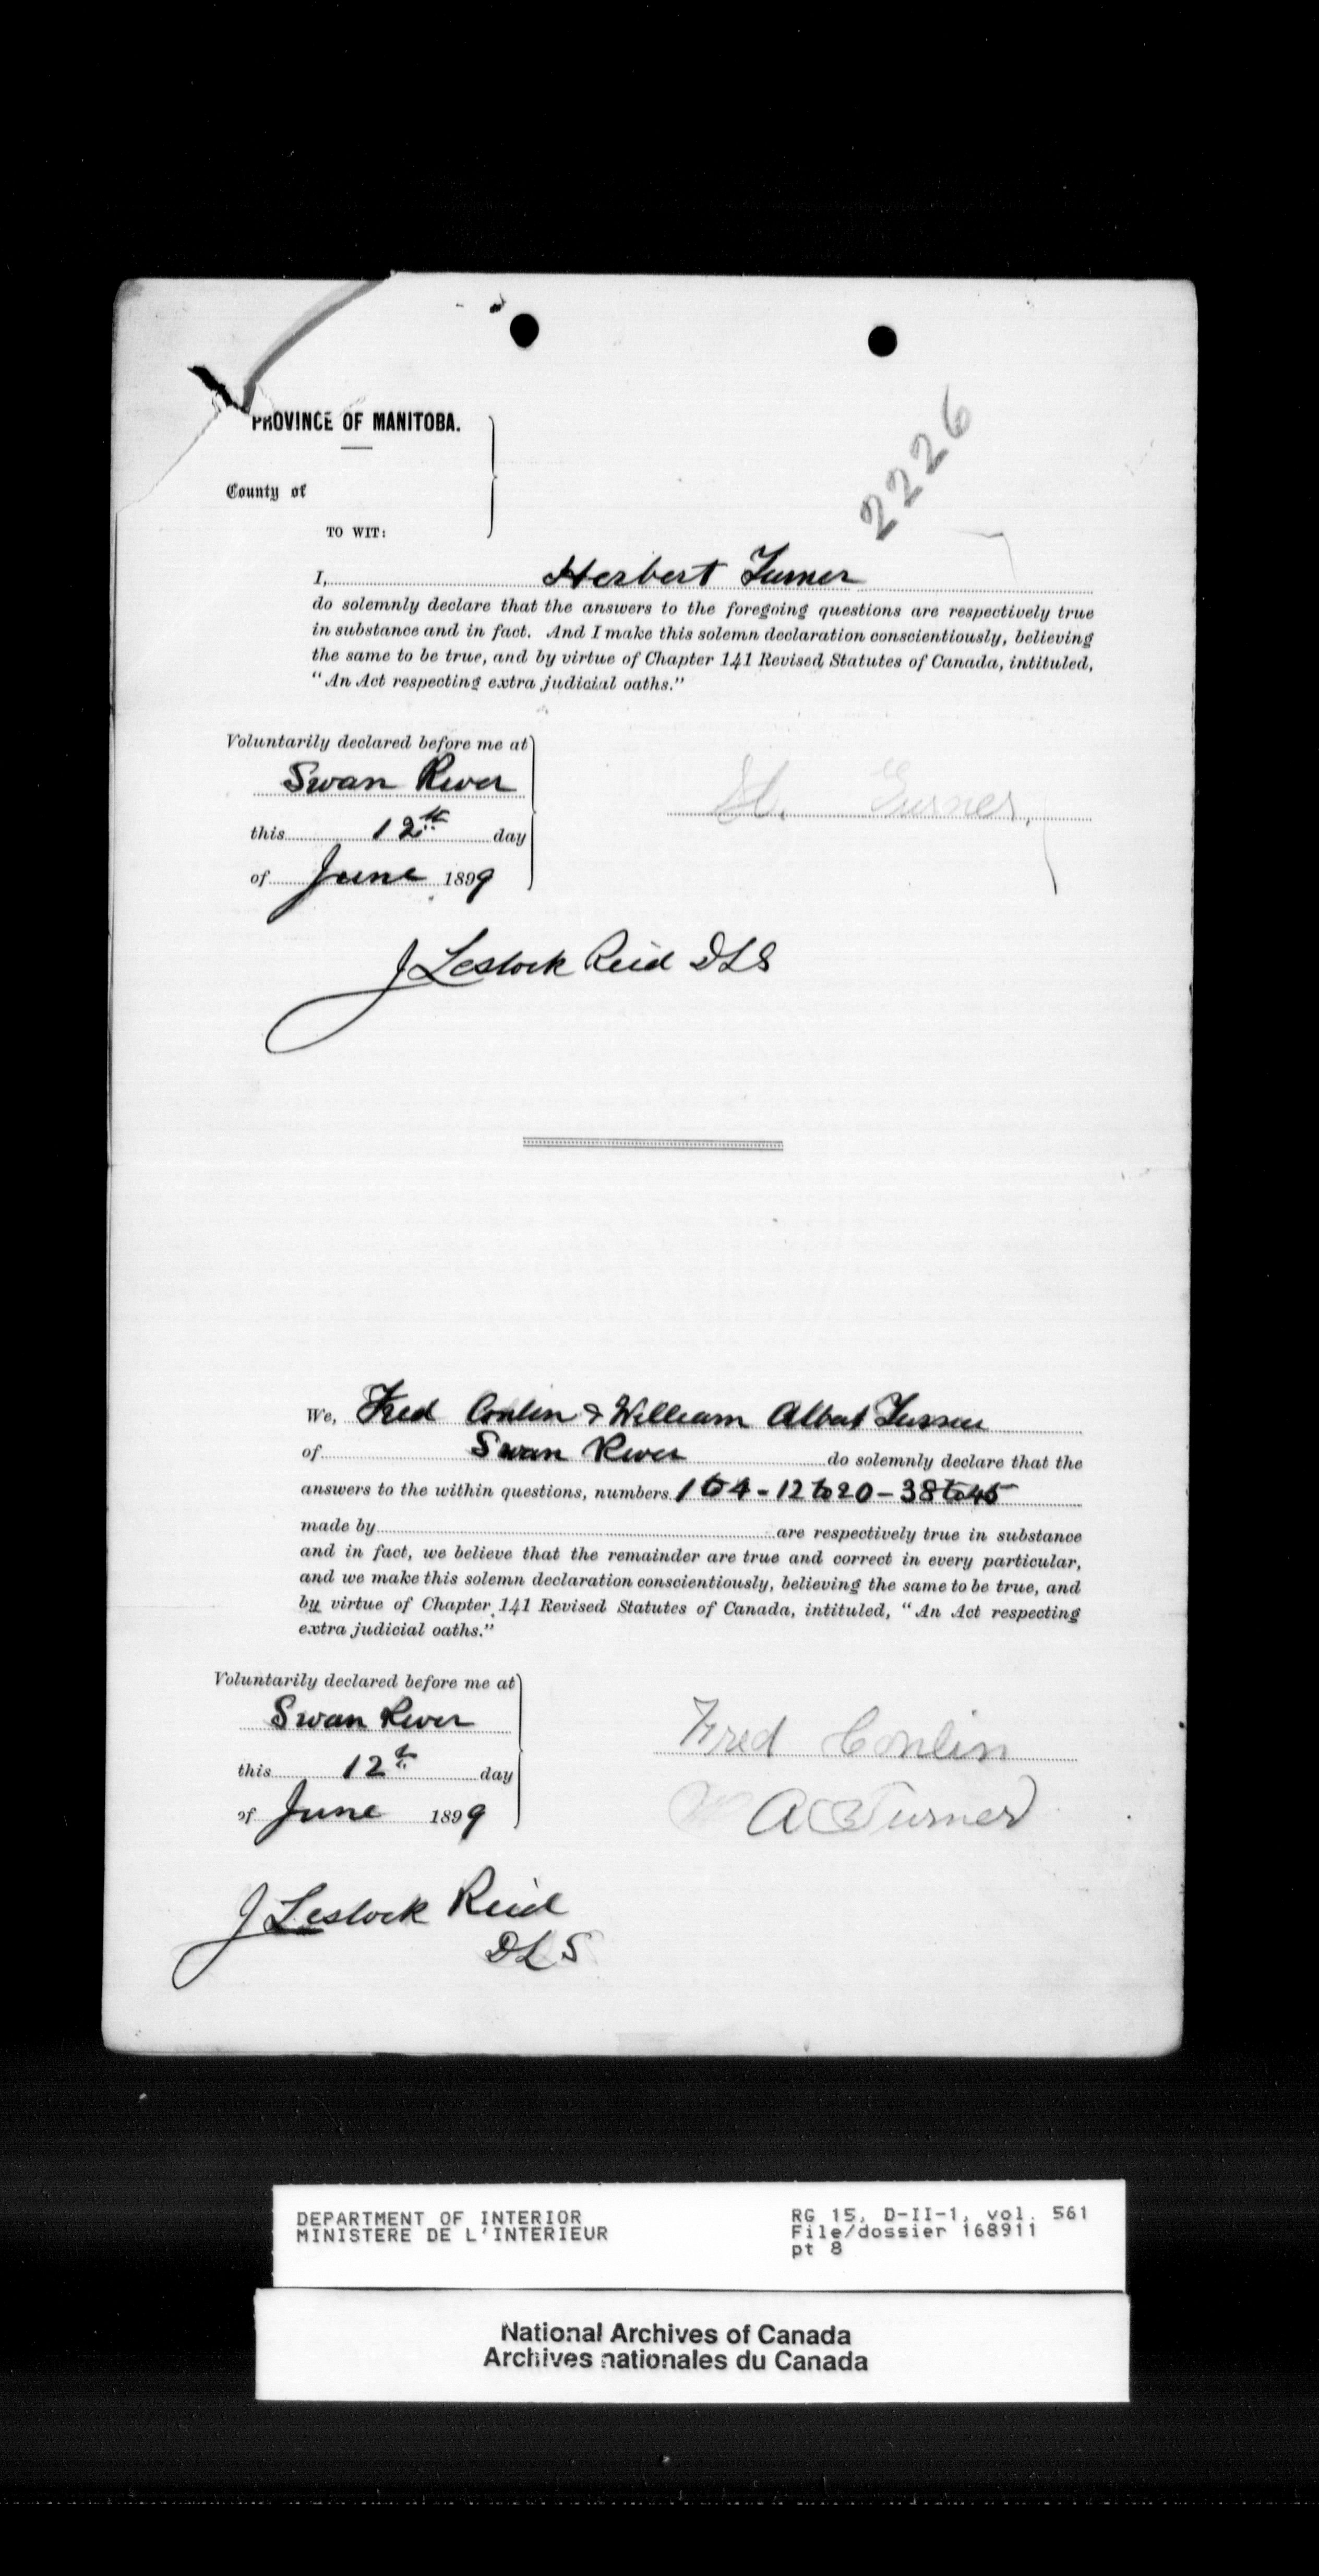 PROVINCE OF MANITOBA.
2226
County of
TO WIT:
I, Herbert Turner
do solemnly declare that the answers to the foregoing questions are respectively true
in substance and in fact. And I make this solemn declaration conscientiously, believing
the same to be true, and by virtue of Chapter 141 Revised Statutes of Canada, intituled,
"An Act respecting extra judicial oaths."
Voluntarily declared before me at
Swan River
H. Turner,
this 12th day
of June 1899
J Lestock Reid DLS
We, Fred Conlin & William Albert Turner
of Swan River do solemnly declare that the
answers to the within questions, numbers 1 to 4 - 12 to 20 - 38 to 45
made by are respectively true in substance
and in fact, we believe that the remainder are true and correct in every particular,
and we make this solemn declaration conscientiously, believing the same to be true, and
by virtue of Chapter 141 Revised Statutes of Canada, intituled, "An Act respecting
extra judicial oaths."
Voluntarily declared before me at
Swan River
Fred Conlin
this 12th day
W A Turner
of June 1899
J Lestock Reid
DLS
DEPARTMENT OF INTERIOR
MINISTERE DE L'INTERIEUR
RG 15, D-II-1, vol. 561
File/dossier 168911
pt 8
National Archives of Canada
Archives nationales du Canada